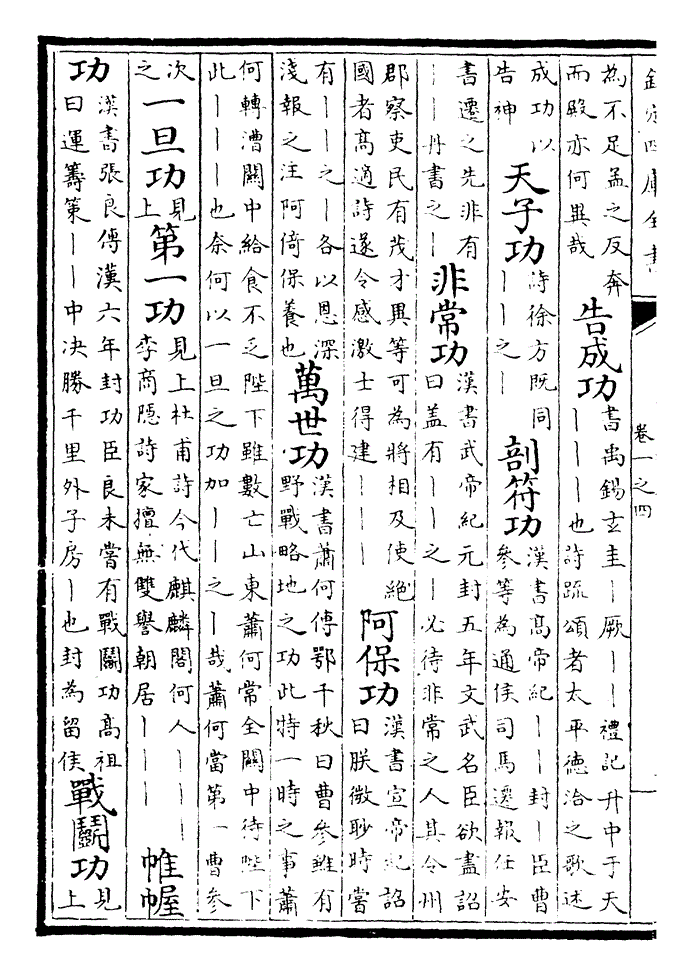 欽定四庫全書 卷一之四
為不足孟之反奔而殿亦何異哉 告成功 書禹錫玄圭丨厥丨丨禮記升中于天丨丨丨也詩疏頌者太平德洽之歌述
成功以告神 天子功 詩徐方既同丨丨之丨 剖符功 漢書高帝紀丨丨封丨臣曹參等為通侯司馬遷報任安
書遷之先非有丨丨丹書之丨 非常功 漢書武帝紀元封五年文武名臣欲盡詔曰盖有丨丨之丨必待非常之人其令州
郡察吏民有茂才異等可為將相及使絕國者高適詩遂令感激士得建丨丨丨 阿保功 漢書宣帝紀詔曰朕微眇時嘗
有丨丨之丨各以恩深淺報之注阿倚保養也 萬世功 漢書蕭何傳鄂千秋曰曹參雖有野戰略地之功此特一時之事蕭
何轉漕關中給食不乏陛下雖數亡山東蕭何常全關中待陛下此丨丨丨也奈何以一旦之功加丨丨之丨哉蕭何當第一曹參
次之 一旦功 見上 第一功 見上杜甫詩今代麒麟閣何人丨丨丨李商隱詩家擅無雙譽朝居丨丨丨 帷幄
功 漢書張良傳漢六年封功臣良未嘗有戰鬭功高祖曰運籌策丨丨中決勝千里外子房丨也封為留侯 戰鬭功 見上